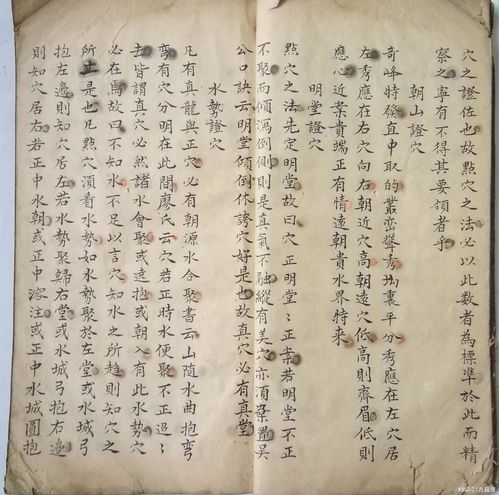 穴之證佐也故點穴之法必以此數者為標準於此而精
察之寧有不得其要領者乎
朝山證穴
奇峰特發直中取的叢巒聳秀裏平分秀應在左穴居
左秀應在右穴向右朝近穴高朝遠穴低高則齊眉低則
應心近案貴端正有情遠朝貴水界特來
明堂證穴
點穴之法先定明堂故曰穴正明堂〻正案若明堂不正
不聚而傾瀉倒側則是真氣不融縱有美穴亦須棄置吴
公口訣云明堂傾倒休誇穴好是也故真穴必有真堂
水勢證穴
凡有真龍與正穴必有朝源水合聚書云山随水曲抱彎
彎有穴分明在此間廖氏云穴若正時水便聚不正迢〻
去皆謂真穴必然諸水會聚或遶抱或朝入有此水勢穴
必在焉故曰不知水不足以言穴知水之所趨則知穴之
所止是也凡點穴須看水勢如水勢聚於左堂或水城弓
抱左邊則知穴居左若水勢聚歸右堂或水城弓抱右邊
則知穴居右若正中水朝或正中注或正中水城圓抱